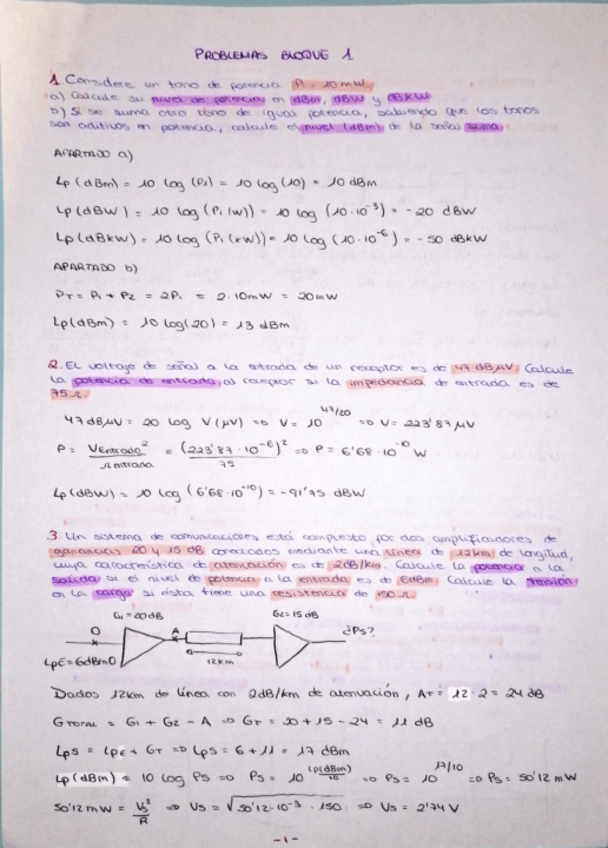 PROBLEMAS BLOQUE 1
1. Considere un tono de potencia P1 = 10 mW.
a) Calcule su nivel de potencia en dBm, dBW y dBkW
b) Si se suma otro tono de igual potencia, sabiendo que los tonos
son aditivos en potencia, calcule el nivel (dBm) de la señal suma.
APARTADO a)
Lp (dBm) = 10 log (P1) = 10 log (10) = 10 dBm
Lp (dBW) = 10 log (P1 (W)) = 10 log (10·10⁻³) = -20 dBW
Lp (dBkW) = 10 log (P1 (kW)) = 10 log (10·10⁻⁶) = -50 dBkW
APARTADO b)
PT = P1 + P2 = 2P1 = 2·10mW = 20mW
Lp(dBm) = 10 log(20) = 13 dBm
2. El voltaje de señal a la entrada de un receptor es de 47 dBµV. Calcule
la potencia de entrada al receptor si la impedancia de entrada es de
75Ω.
47 dBµV = 20 log V (µV) => V = 10^47/20 => V = 223'87 µV
P = Ventrada²/Ωentrada = (223'87·10⁻⁶)²/75 => P = 6'68·10⁻¹⁰ W
Lp (dBW) = 10 log (6'68·10⁻¹⁰) = -91'75 dBW
3. Un sistema de comunicaciones está compuesto por dos amplificadores de
ganancias 20 y 15 dB conectados mediante una línea de 12km de longitud,
cuya característica de atenuación es de 2dB/km. Calcule la potencia a la
salida si el nivel de potencia a la entrada es de 6dBm. Calcule la tensión
en la carga si ésta tiene una resistencia de 150 Ω.
G1 = 20dB G2 = 15 dB
O A ¿Ps?
LpE = 6dBm0 12km
Dados 12km de línea con 2dB/km de atenuación, AT = 12·2 = 24 dB
GTOTAL = G1 + G2 - A => GT = 20 + 15 - 24 = 11 dB
LpS = LpE + GT => LpS = 6 + 11 = 17 dBm
Lp (dBm) = 10 log Ps => Ps = 10^Lp(dBm)/10 => Ps = 10^17/10 => Ps = 50'12 mW
50'12 mW = Vs²/R => Vs = √50'12·10⁻³·150 => Vs = 2'74 V
-1-